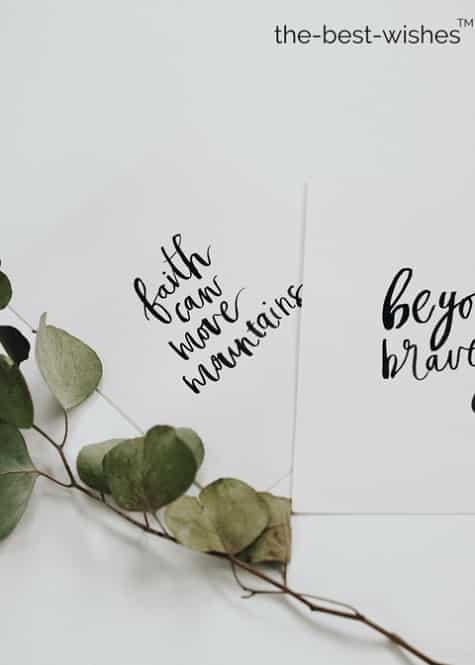 the-best-wishes™
faith
can
move
mountains